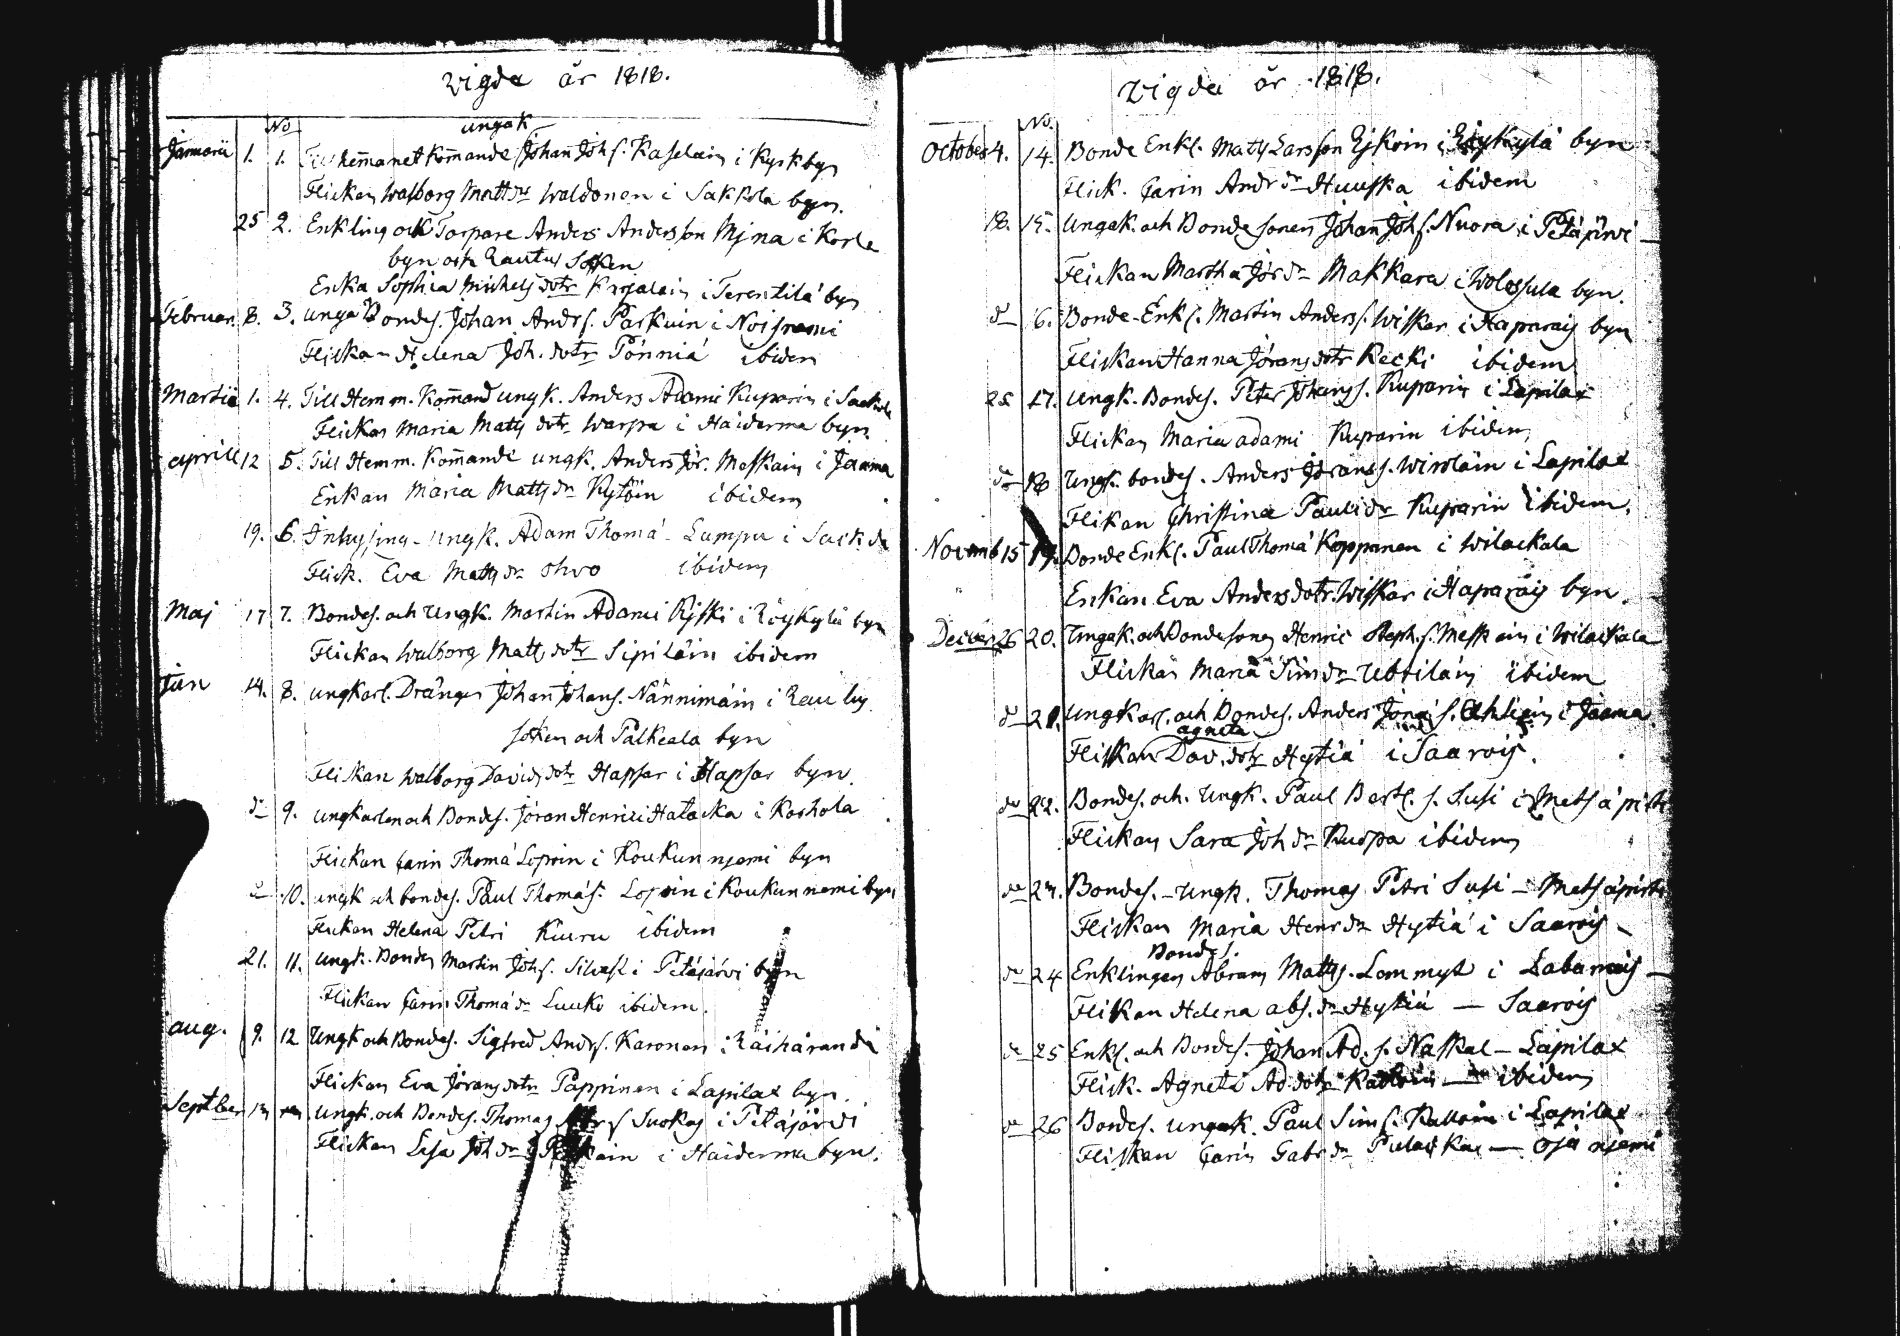 Vigde år 1818.
No
ungak
Januarii 1. 1. Till hem̄anet kom̄ande Johan Johs. Kaselain i Kyrkbyn
Flickan Walborg Matts dr Waldonen i Sakkola byn.
25 2. Enkling och Torpare Anders Andersson Mjna i Korle
byn och Rautus Sokn
Enka Sophia Michels dotr Karjalain i Terentilä byn
Februar. 8. 3. unga Bondes. Johan Andrs. Parkuin i Noisniemi
Flickan Helena Joh. dotr Pönniä ibidem
Martii 1. 4. Till Hemm. Kom̄and ungk. Anders Adami Kuparin i Sackola
Flickan Maria Matts dotr Warpa i Haiderma byn.
aprill 12 5. Till Hemm. Kom̄ande ungk. Anders Jör. Meskain i Jaama
Enkan Maria Matts dr Kytöin ibidem
19. 6. Inhysing ungk. Adam Thomä Lumpu i Sackola
Flick. Eva Matts dr Ohvo ibidem
Maj 17 7. Bondes. och Ungk. Martin Adami Kiski i Röykylä byn
Flickan Walborg Matts dotr Sipiläin ibidem
Jun 14. 8. ungkarl. Drängen Johan Johans. Nännimäin i Rautus
soken och Palkeala byn
Flickan Walborg Davids dotr Hapsar i Hapsar byn.
do 9. ungkarlen och Bondes. Jöran Henrici Hatacka i Koshola
Flickan Carin Thomä Lopoin i Koukunnjemi byn
do 10. ungk och bondes. Paul Thomä s. Lopoin i Koukunniemi byn
Flickan Helena Petri Kiuru ibidem
21. 11. ungk. Bondes Martin Johs. Silvast i Petäjärvi byn
Flickan Carin Thomä dr Luuko ibidem.
aug. 9. 12 Ungk och Bondes. Sigfred Andrs. Karonen i Räihäranda
Flickan Eva Jörans dotr Pappinen i Lapilax byn.
Septber 13 ungk. och Bondes. Thomas s Suokas i Petäjärvi
Flickan Lisa Joh dr i Haiderma byn.
Vigde år 1818.
No.
October 4. 14. Bonde Enkl. Matts Larsson Ejkoin i Röykylä byn
Flick. Carin Andr dr Huuska ibidem
18. 15. Ungak. och Bonde sonen Johan Johs. Nuora i Petäjärvi
Flickan Martha Jör dr Makkara i Wolossula byn.
do 16. Bonde-Enkl. Martin Anders. Wiskar i Haparais byn
Flickan Hanna Jörans dotr Recki ibidem
25 17. Ungk. Bondes. Peter Johans s. Kuparin i Lapilax
Flickan Maria adami Kuparin ibidem
do 18 Ungk. bondes. Anders Jörans s. Wirolain i Lapilax
Flikan Christina Pauli dr Kuparin ibidem.
Novemb 15 19. Bonde Enkl. Paul Thomä Koppanen i Wilackala
Enkan Eva Anders dotr. Wiskar i Haparais byn.
Decemb 26 20. Ungak. och Bondesonen Henric Steph. s. Meskain i Wilackala
Flickan Maria Sim dr Ubriläin ibidem
do 21. Ungkarl. och Bondes. Anders Jöra s. Ahliain i Jaama.
agneta
Flickan Dav. dotr Hytiä i Saarois.
do 22. Bondes. och. Ungk. Paul Bert. s. Susi i Metsäpirti
Flickan Sara Joh dr Kuospa ibidem
do 23. Bondes. - Ungk. Thomas Petri Susi – Metsäpirti
Flickan Maria Henr dr Hytiä i Saarois –
Bondes.
do 24 Enklingen Abram Matts. Lommyt i Labanais –
Flickan Helena abs. dr Hytiä — Saarois
do 25 Enkl. och Bondes. Johan Ad. s. Naskal – Lapilax
Flick. Agneta Ad dotr — ibidem
do 26 Bondes. ungak. Paul Sim s. Kalloin i Lapilax
Flickan Carin Gabr dr Pulackar — Ojanjemi